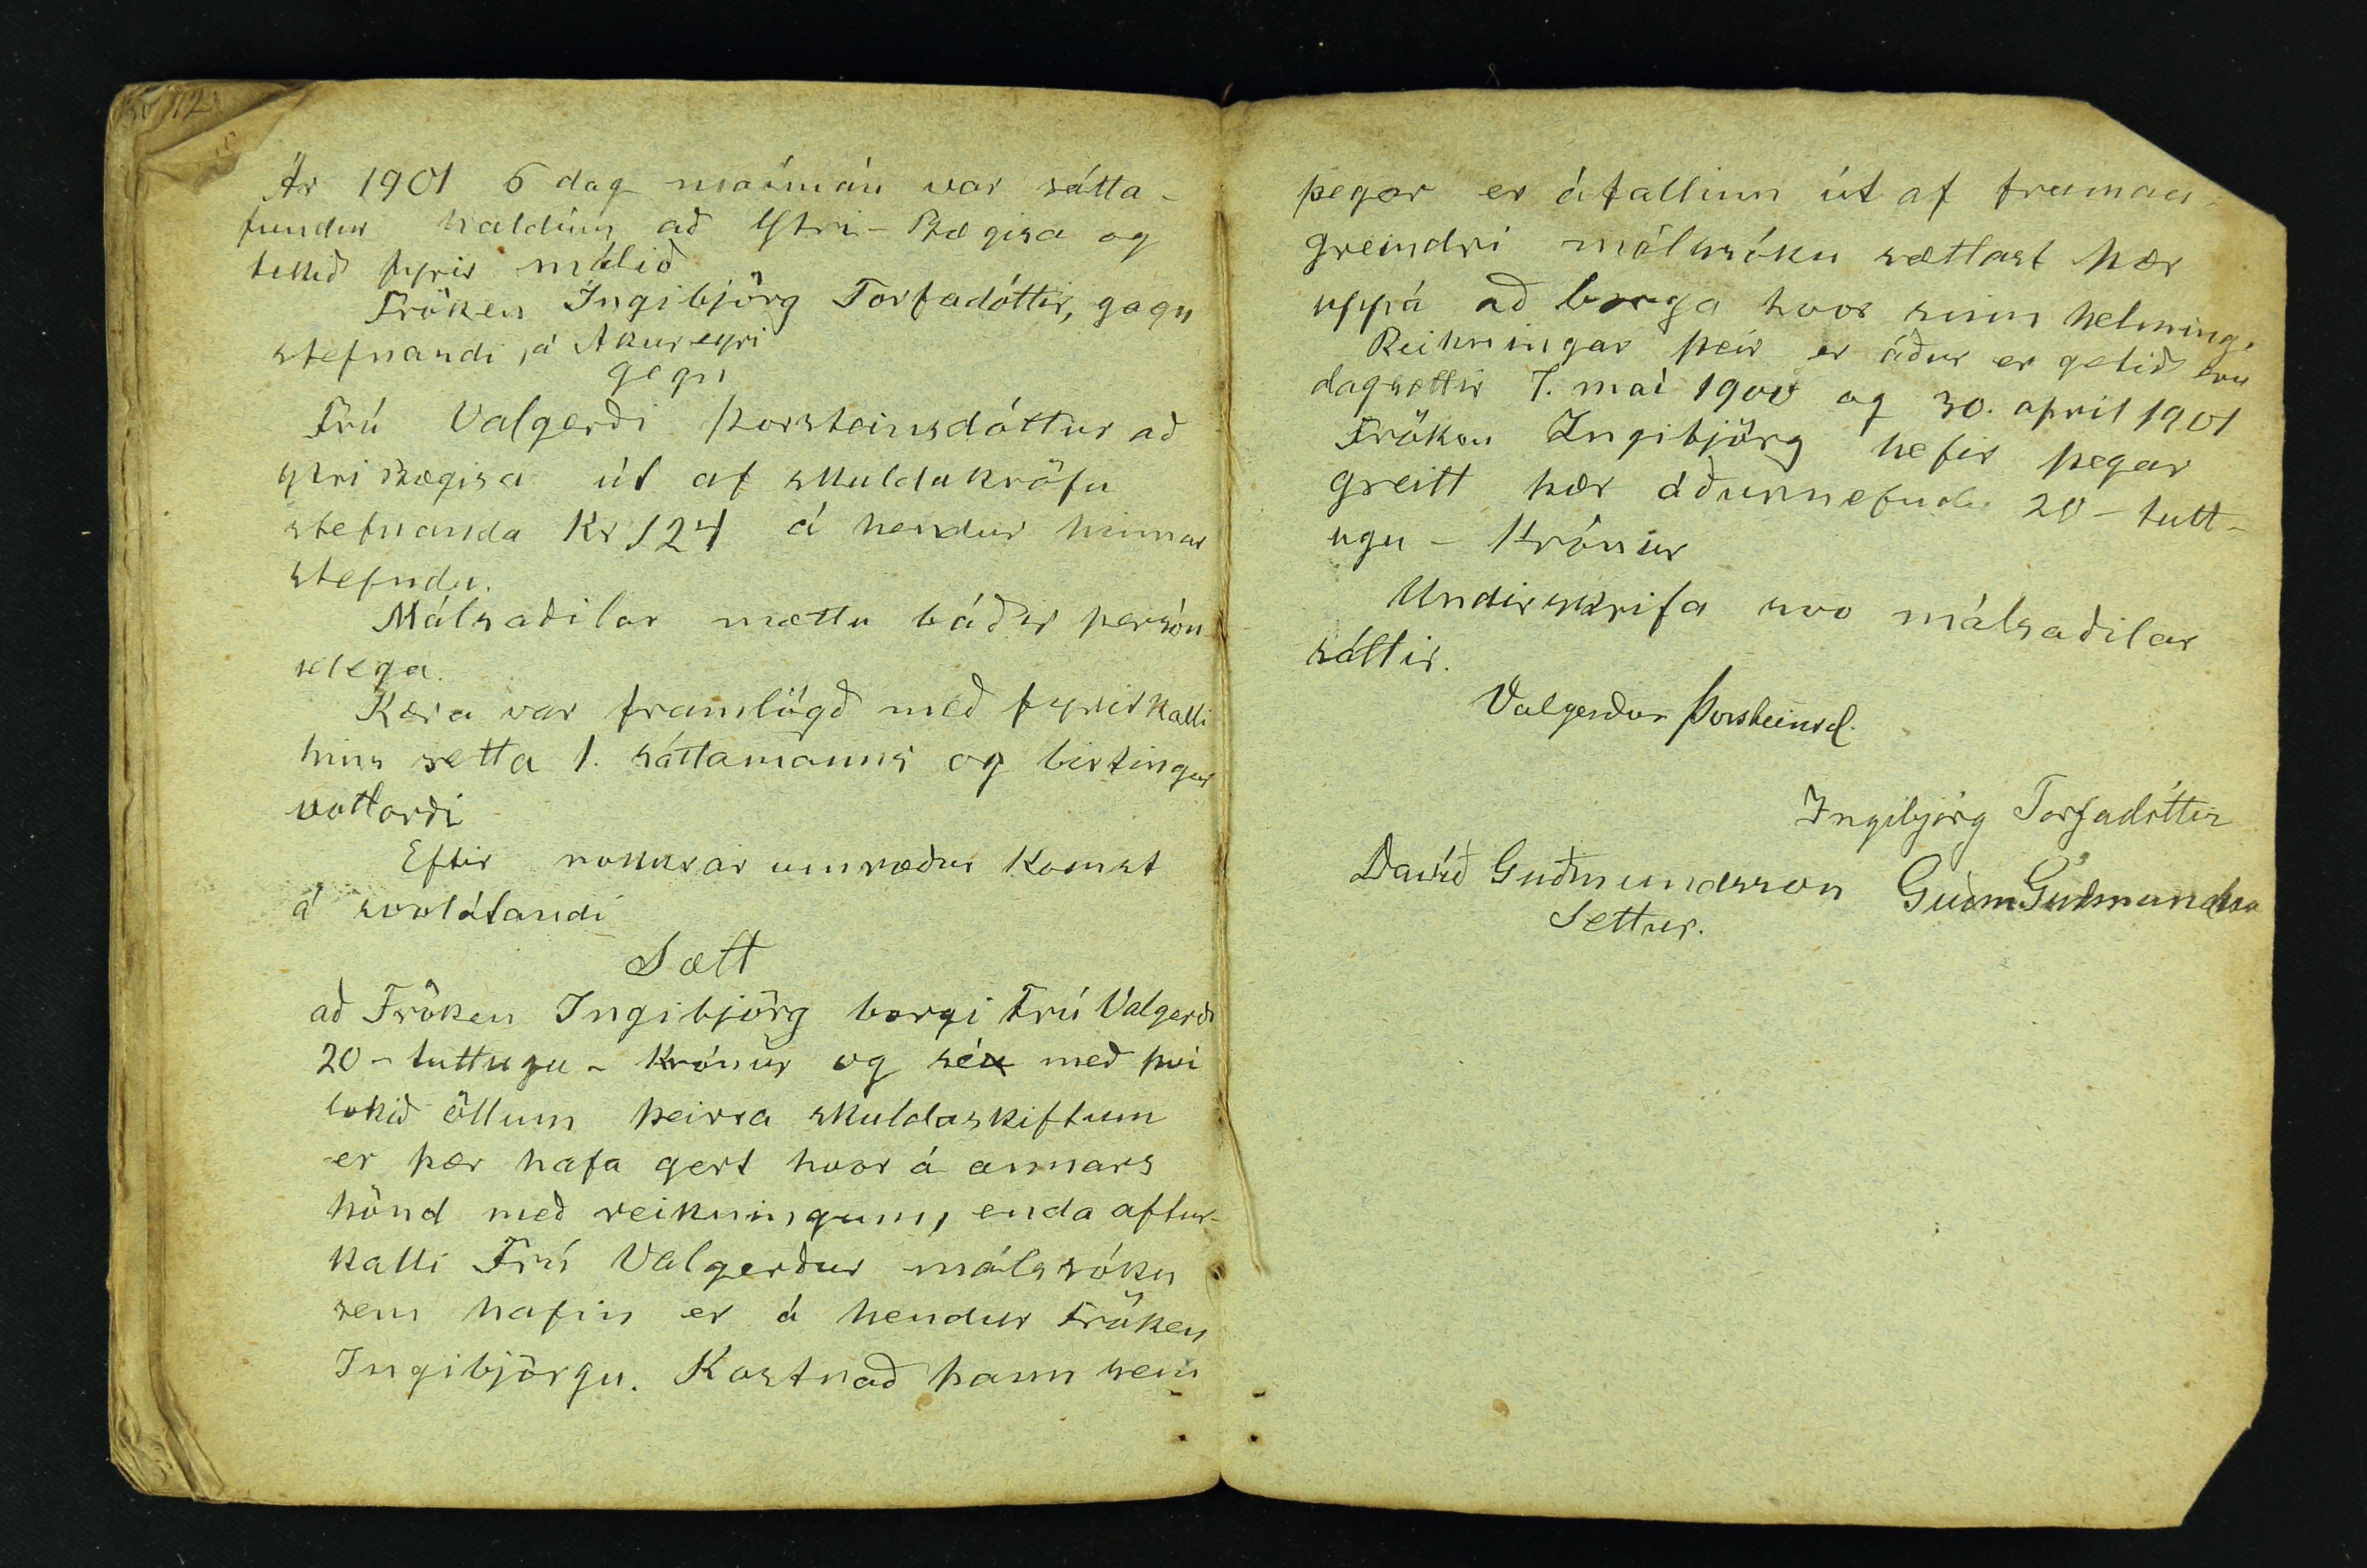 Ár 1901 6 dag maímán var sátta-
fundur haldinn að Ytri-Bægisa og
tekið fyrir málið
Fröken Ingibjörg Torfadóttir, gagn
stefnandi, á Akureyri
gegn
Frú Valgerði Þorsteinsdóttur að
ytri Bægisa út af skuldakröfu
stefnanda Kr 124 á hendur hinnar
stefndu.
Málsaðilar mættu báðir persón-
ulega.
Kæra var framlögð með fyrirkalli
hins setta 1. sáttamanns og birtingar
vottorði
Eftir nokkrar umræður komst
á svolátandi
Sætt
að Fröken Ingibjörg borgi Frú Valgerði
20 - tuttugu - Krónur og sé með því
lokið öllum þeirra skuldaskiftum
er þær hafa gert hvor á annars
hönd með reikningum, enda aftur-
kalli Frú Valgerður málssókn
sem hafin er á hendur Fröken
Ingibjörgu. Kostnað þann sem
þegar er áfallinn út af framan-
greindri málssókn sættast þær
uppá að borga hvor sinn helming.
Reikningar þeir er áður er getið eru
dagsettir 7. maí 1900 og 30. apríl 1901
Fröken Ingibjörg hefir þegar
greitt þær áðurnefndu 20 - tutt-
ugu - Krónur
Undirskrifa svo málsaðilar
sáttir.
Valgerður Þorsteinsd.
Ingibjörg Torfadóttir
Davíð Guðmundsson Guðm Guðmundsson
Settur.